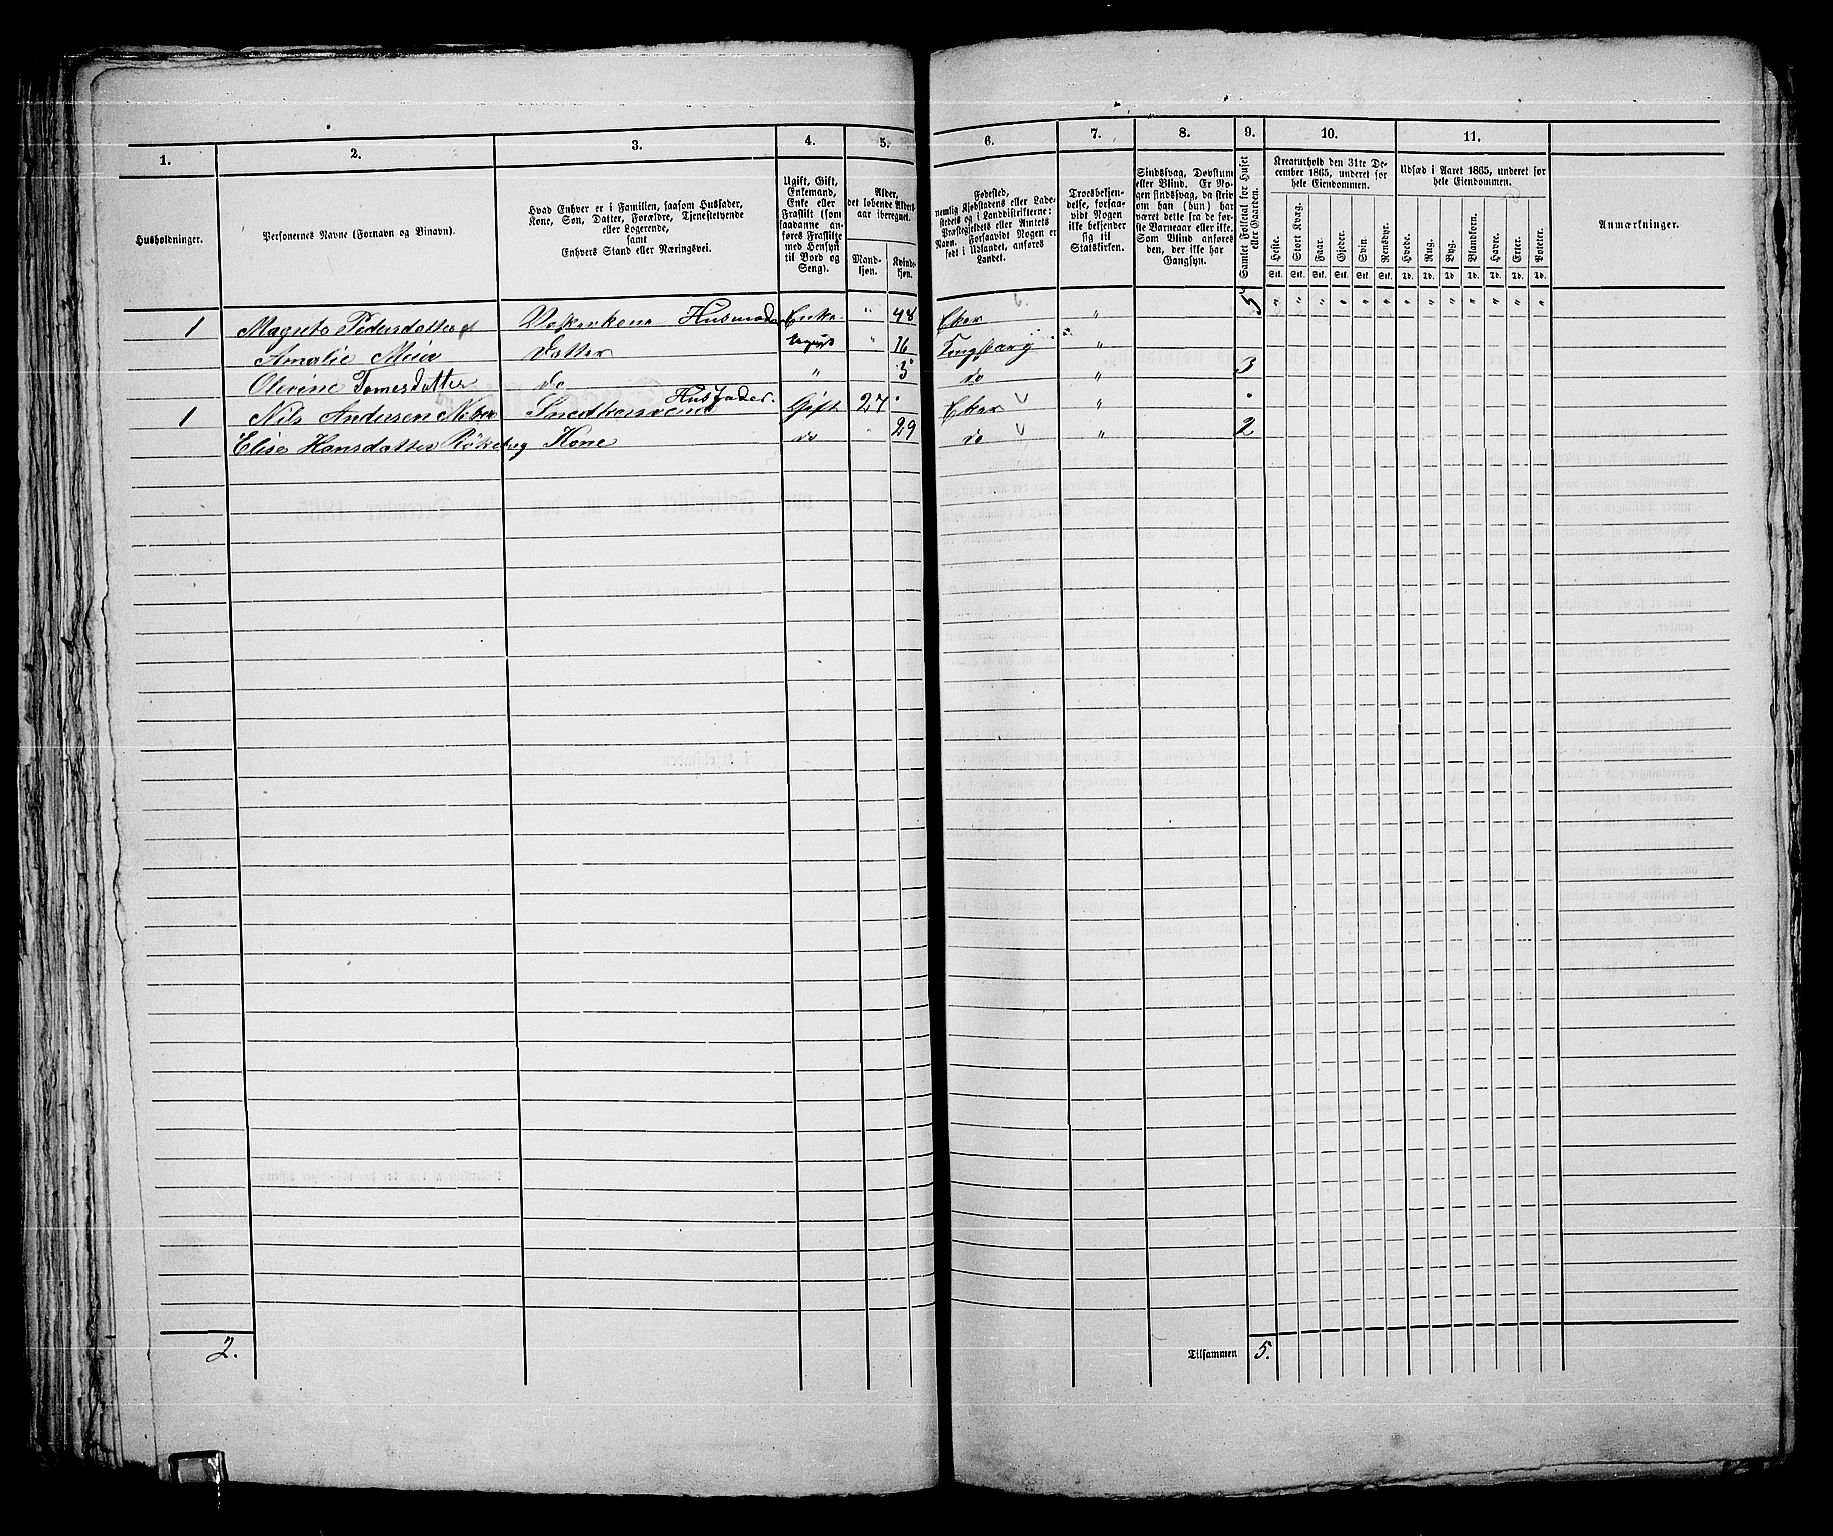 1. 2. 3. 4. 5. 6. 7. 8. 9. 10. 11.
Husholdninger.
Personernes Navne (Fornavn og Binavn).
Hvad Enhver er i Familien, saasom Husfader,
Kone, Søn, Datter, Forældre, Tjenestetyende
eller Logerende,
samt
Enhvers Stand eller Næringsvei.
Ugift, Gift,
Enkemand,
Enke eller
Fraskilt (som
saadanne an-
føres Fraskilte
med Hensyn
til Bord og
Seng).
Alder,
det løbende Alders-
aar iberegnet.
Mand-
kjøn.
Kvinde-
kjøn.
Fødested,
nemlig Kjøbstadens eller Lade-
stedets og i Landdistrikterne:
Præstegjeldets eller Amtets
Navn. Forsaavidt Nogen er
født i Udlandet, anføres
Landet.
Troesbekjen-
delse, forsaa-
vidt Nogen
ikke bekjender
sig til
Statskirken.
Sindssvag, Døvstum
eller Blind. Er No-
gen sindssvag, da skrives
om han (hun) har
været dette fra de før-
ste Barneaar eller ikke.
Som Blind anføres
den, der ikke har
Gangsyn.
Samlet Folketal for Huset
eller Gaarden.
Kreaturhold den 31te De-
cember 1865, underet for
hele Eiendommen.
Heste. Stort Kvæg. Faar. Gjeder. Svin. Rensdyr.
Stk. Stk. Stk. Stk. Stk. Stk.
Udsæd i Aaret 1865, underet for
hele Eiendommen.
Hvede. Rug. Byg. Blandkorn. Havre. Erter. Poteter.
Td. Td. Td. Td. Td. Td. Td.
Anmærkninger.
1 Magreta Pedersdatter Vaskerkone Husmoder Enke " 48 Eker " 5 " " " " " " " " " " " " "
Amalie Ugift " 16 "
Olevine Tomesdatter do " 3 do " 3
1 Nils Andersen Husfader. Gift 27 " Eker "
Elise Hansdatter Kone do " 29 do " 2
2. Tilsammen 5.